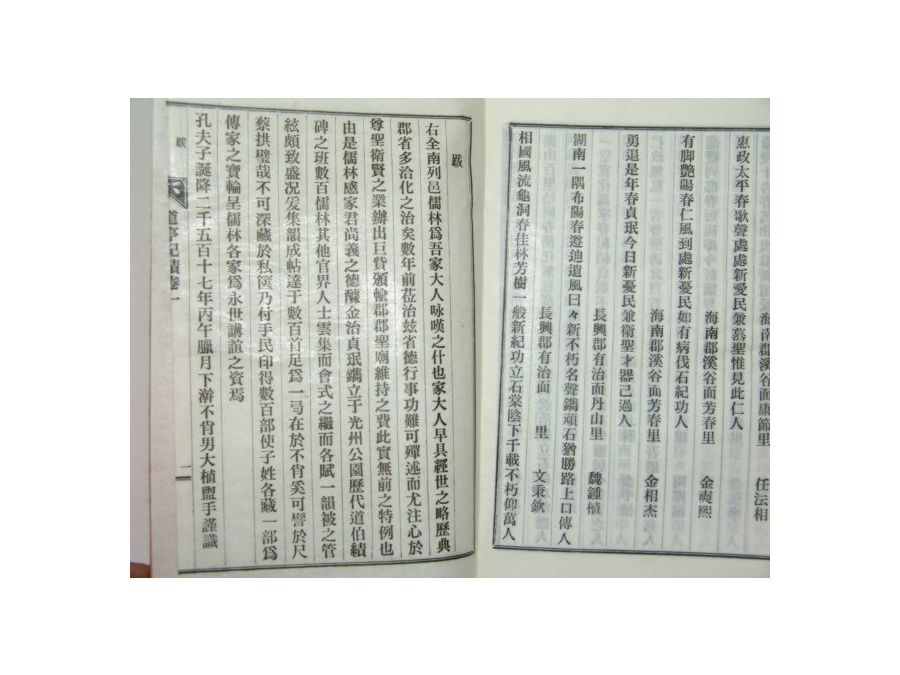 海南郡溪谷面康節里 任法相
惠政太平春歌聲處處新愛民兼慕聖惟見此仁人
海南郡溪谷面芳春里 金奭熙
有脚艷陽春仁風到處新憂民如有病伐石紀功人
海南郡溪谷面芳春里 金相杰
勇退是年春貞珉今日新憂民兼衛聖才器已過人
長興郡有治面丹山里 魏鍾植
湖南一隅布陽春邇迪遺風曰々新不朽名聲鐫頑石猶勝路上口傳人
長興郡有治面 里 文秉欽
相國風流龜洞春佳林芳樹一般新紀功立石棠陰下千載不朽仰萬人
跋
右全南列邑儒林爲吾家大人咏嘆之什也家大人早具經世之略歷典
郡省多治化之治矣數年前莅治玆省德行事功難可殫述而尤注心於
尊聖衛賢之業辦出巨貲頒輸郡郡聖廟維持之費此實無前之特例也
由是儒林感家君尚義之德醵金治貞珉鐫立于光州公園歷代道伯績
碑之班數百儒林其他官界人士雲集而會式之繼而各賦一韻被之管
絃頗致盛况爰集韻成帖達于數百首足爲一弓在於不肖奚可譬於尺
蔡拱璧哉不可深藏於私篋乃付手民印得數百部使子姓各藏一部爲
傳家之寶輪呈儒林各家爲永世講誼之資焉
孔夫子誕降二千五百十七年丙午臘月下澣不肖男大植盥手謹識
跋
道亭記蹟卷一